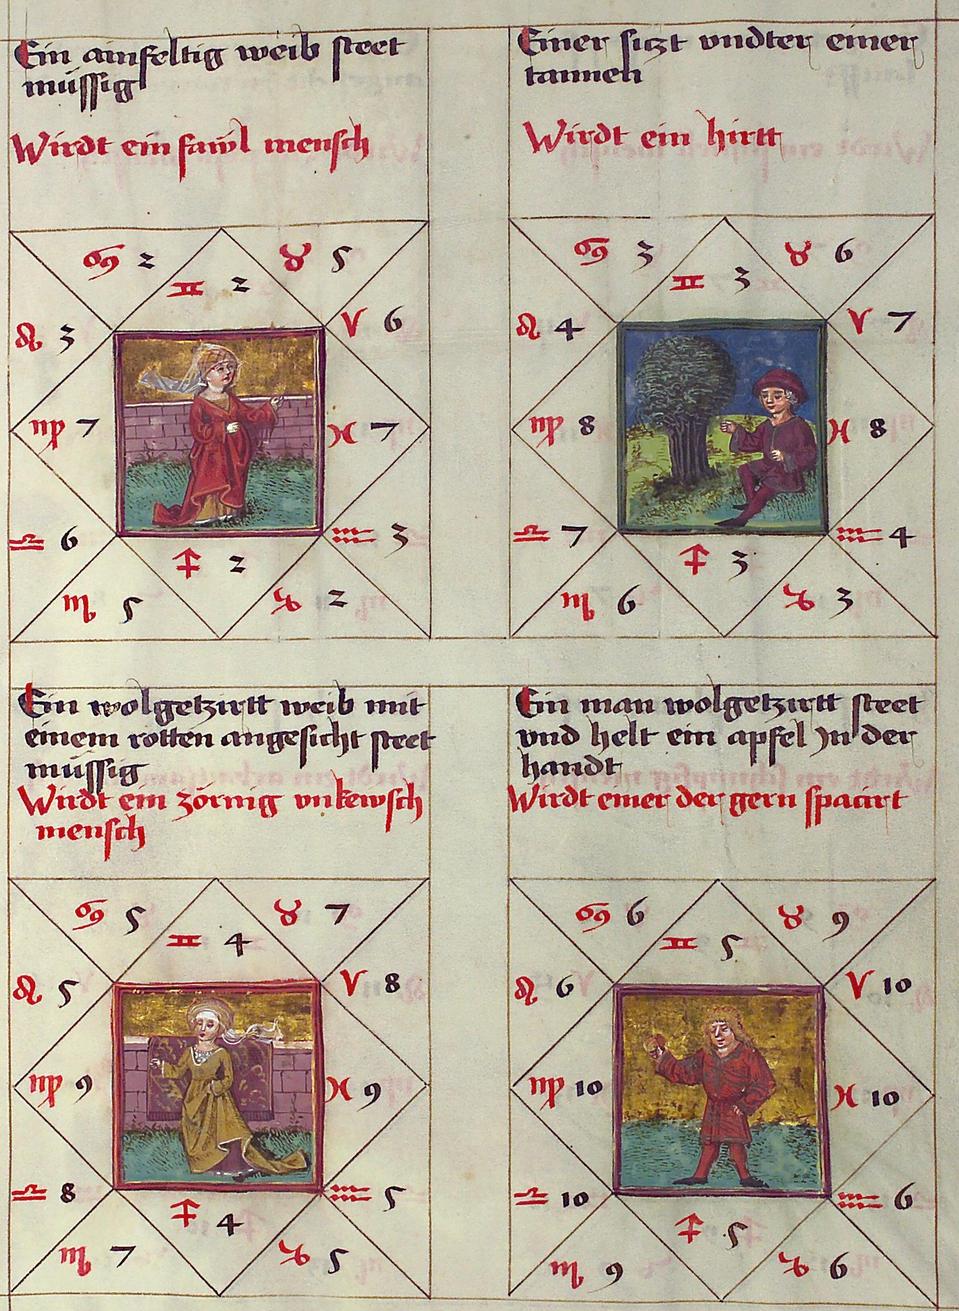 Ein ainfeltig weib steet
müssig
Wirdt ein fawl mensch
♋ 2
♊ 2
♉ 5
♌ 3
♈ 6
♍ 7
♓ 7
♎ 6
♒ 3
♏ 5
♐ 2
♑ 2
Einer siczt vndter einer
tannen
Wirdt ein hirtt
♋ 3
♊ 3
♉ 6
♌ 4
♈ 7
♍ 8
♓ 8
♎ 7
♒ 4
♏ 6
♐ 3
♑ 3
Ein wolgetzirtt weib mit
einem rotten angesicht steet
müssig
Wirdt ein zörnig vnkewsch
mensch
♋ 5
♊ 4
♉ 7
♌ 5
♈ 8
♍ 9
♓ 9
♎ 8
♒ 5
♏ 7
♐ 4
♑ 5
Ein man wolgetzirtt steet
vnd helt ein apfel Jn der
handt
Wirdt einer der gern spacirt
♋ 6
♊ 5
♉ 9
♌ 6
♈ 10
♍ 10
♓ 10
♎ 10
♒ 6
♏ 9
♐ 5
♑ 6